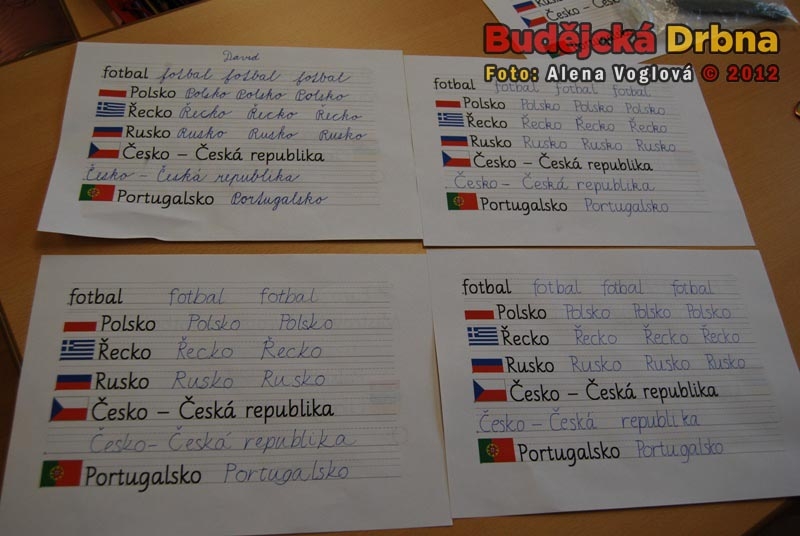 Budějcká Drbna
Foto: Alena Voglová © 2012
Česko –
David
fotbal fotbal fotbal fotbal
Polsko Polsko Polsko Polsko
Řecko Řecko Řecko Řecko
Rusko Rusko Rusko Rusko
Česko – Česká republika
Česko – Česká republika
Portugalsko Portugalsko
fotbal fotbal fotbal fotbal
Polsko Polsko Polsko Polsko
Řecko Řecko Řecko Řecko
Rusko Rusko Rusko Rusko
Česko – Česká republika
Česko – Česká republika
Portugalsko Portugalsko
fotbal fotbal fotbal
Polsko Polsko Polsko
Řecko Řecko Řecko
Rusko Rusko Rusko
Česko – Česká republika
Česko – Česká republika
Portugalsko Portugalsko
fotbal fotbal fotbal fotbal
Polsko Polsko Polsko Polsko
Řecko Řecko Řecko Řecko
Rusko Rusko Rusko Rusko
Česko – Česká republika
Česko – Česká republika
Portugalsko Portugalsko